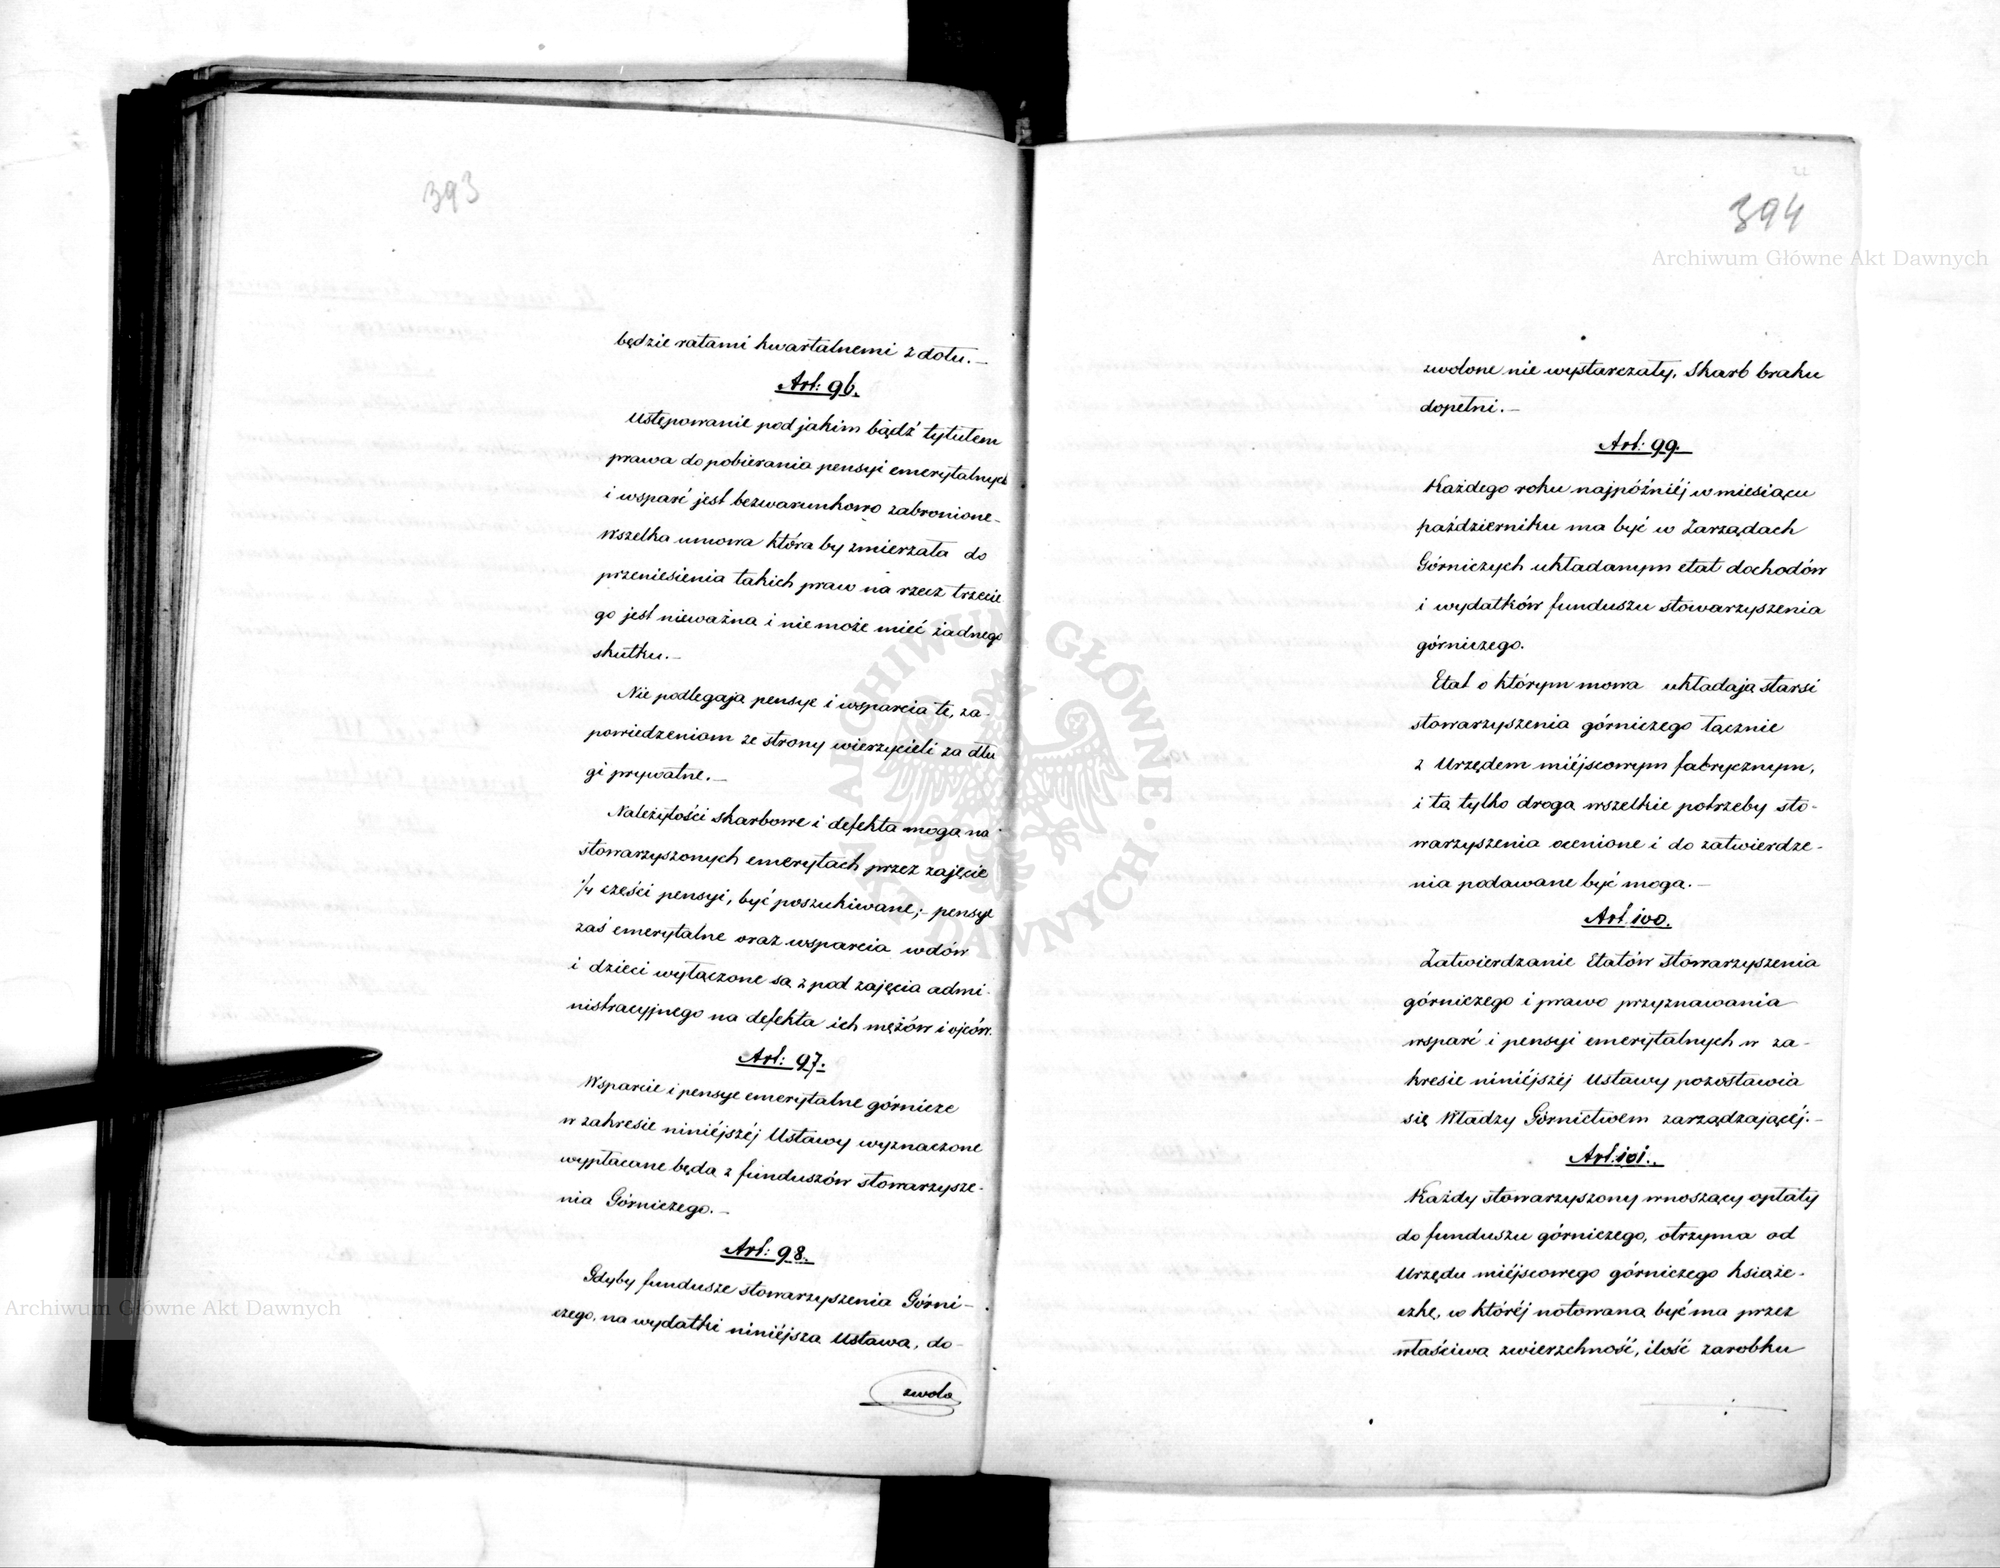 393
będzie ratami kwartalnemi z dołu.—
Art: 96.
Ustępowanie pod jakim bądź tytułem
prawa do pobierania pensyi emerytalnych
i wsparć jest bezwarunkowo zabronione-
Wszelka umowa która by zmierzała do
przeniesienia takich praw na rzecz trzecie
go jest nieważna i nie może mieć żadnego
skutku.—
Nie podlegają pensye i wsparcia te, za-
powiedzeniom ze strony wierzycieli za dłu
gi prywatne.—
Należytości skarbowe i defekta mogą na
stowarzyszonych emerytach przez zajęcie
1/4 części pensyi, być poszukiwane;- pensye
zaś emerytalne oraz wsparcia wdów
i dzieci wyłączone są z pod zajęcia admi-
nistracyjnego na defekta ich mężów i ojców.
Art: 97.
Wsparcie i pensye emerytalne górnicze
w zakresie niniéjszéj Ustawy wyznaczone
wypłacane będą z funduszów stowarzysze-
nia Górniczego.—
Art: 98.
Gdyby fundusze stowarzyszenia Górni-
czego, na wydatki niniéjszą Ustawą, do-
zwolo
394
zwolone nie wystarczały, Skarb braku
dopełni.—
Art: 99.
Każdego roku najpóźniéj w miesiącu
październiku ma być w Zarządach
Górniczych układanym etat dochodów
i wydatków funduszu stowarzyszenia
górniczego.
Etat o którym mowa układają starsi
stowarzyszenia górniczego łącznie
z Urzędem miéjscowym fabrycznym,
i tą tylko drogą wszelkie potrzeby sto-
warzyszenia ocenione i do zatwierdze-
nia podawane być mogą.—
Art. 100.
Zatwierdzanie Etatów stowarzyszenia
górniczego i prawo przyznawania
wsparć i pensyi emerytalnych w za-
kresie niniéjszéj Ustawy pozostawia
się Władzy Górnictwem zarządzającéj.—
Art. 101.
Każdy stowarzyszony wnoszący opłaty
do funduszu górniczego, otrzyma od
Urzędu miéjscowego górniczego książe-
czkę, w któréj notowaną być ma przez
właściwą zwierzchność, ilość zarobku
Archiwum Główne Akt Dawnych
Archiwum Główne Akt Dawnych
ARCHIWUM GŁÓWNE AKT DAWNYCH